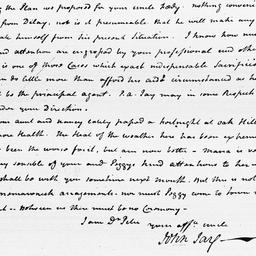 the Plan we proposed for your uncle Fady. nothing conveni
from Delay, not is it presumeable that he will make any
ate himself from his present Situation. I know how muc
and attention are engrossed by your professional and othe
is one of those Cases which exact indispensable Sacrifices
be little more than afford his aid circumstanced as he
to be the principal agent. P.a. Jay may in some Respect
der your Direction.
your aunt and nancy lately passed a fortnight at oak Hill
more Health. The Heat of the weather here has been extreme
been the worse for it, but are now better. maria is ve
sensible of your and Peggys kind attentions to her
shall be with you sometime next month. But she is not
arrangements. nor must Peggy come to town
Between us there must be no Ceremony—
I am Dr. Peter
your affte. uncle
John Jay